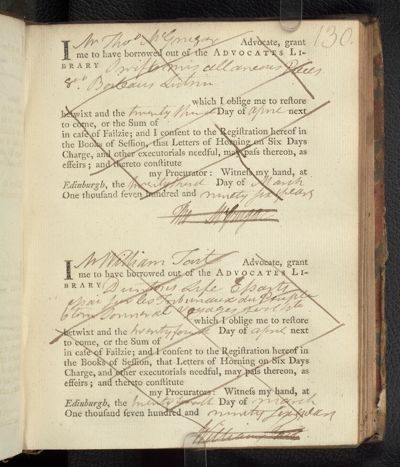 130.
I Mr Thos McGrugar Advocate, grant
me to have borrowed out of the ADVOCATES LI-
BRARY Swift's miscellaneous Pieces
8vo Boileaus Lutrin
which I oblige me to restore
betwixt and the twenty third Day of april next
to come, or the Sum of
in case of Failzie; and I consent to the Registration hereof in
the Books of Session, that Letters of Horning on Six Days
Charge, and other executorials needful, may pass thereon, as
effeirs; and thereto constitute
my Procurators: Witness my hand, at
Edinburgh, the twenty third Day of March
One thousand seven hundred and ninety six years
I Mr William Tait Advocate, grant
me to have borrowed out of the ADVOCATES LI-
BRARY Life
sur les Tribunaux du Peuple
Sonnerat Voyages
which I oblige me to restore
betwixt and the twenty fourth Day of april next
to come, or the Sum of
in case of Failzie; and I consent to the Registration hereof in
the Books of Session, that Letters of Horning on Six Days
Charge, and other executorials needful, may pass thereon, as
effeirs; and thereto constitute
my Procurators: Witness my hand, at
Edinburgh, the twenty fourth Day of march
One thousand seven hundred and ninety six years
William Tait